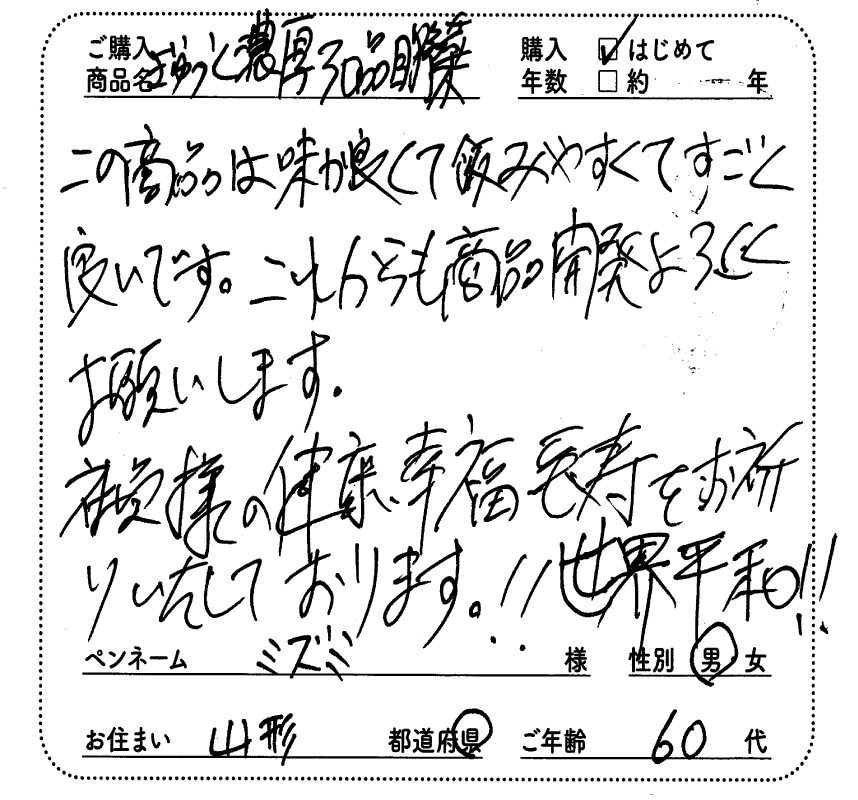 ご購入商品名 ぎゅっと濃厚30品目野菜
購入年数 ☑はじめて □約 年
この商品は味が良くて飲みやすくてすごく
良いです。これからも商品開発よろしく
お願いします。
社員様の健康、幸福長寿をお祈
りいたしております。!!世界平和!!
ペンネーム ミズミ 様 性別 男 女
お住まい 山形 都道府県 ご年齢 60 代